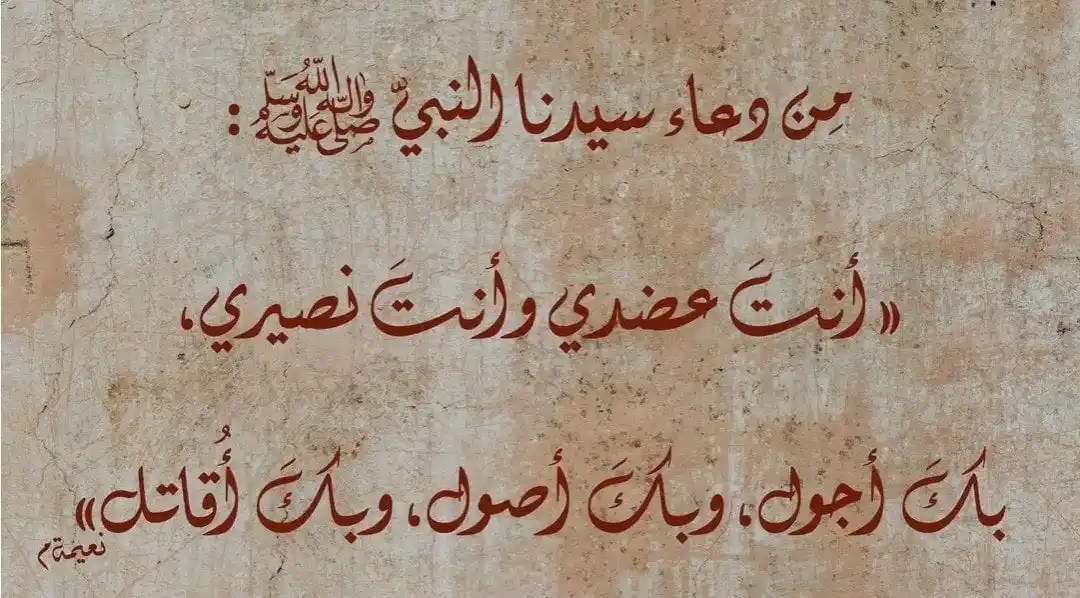 مِن دعاء سيدنا النبيّ ﷺ :
« أنتَ عضدي وأنتَ نصيري،
بكَ أجول، وبكَ أصول، وبكَ أُقاتل»
نعيمة م